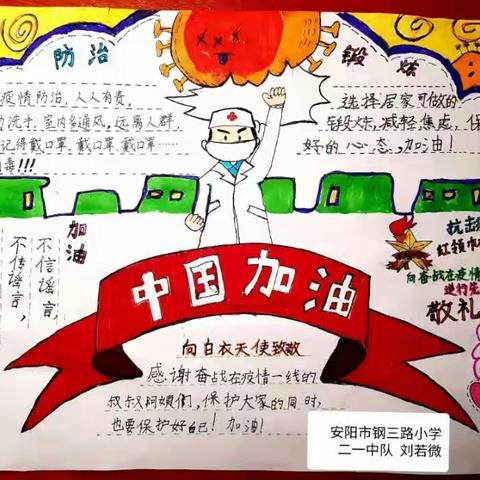 防治
疫情防治，人人有责，
洗手，室内多通风，远离人群，
记得戴口罩，戴口罩，戴口罩……
毒！！！
锻炼
选择居家可做的
锻炼，减轻焦虑，保
好的心态。加油！
加油
不信谣言，
不传谣言，
抗击
红领巾
向奋战在疫情
逆行
敬礼
中国加油
向白衣天使致敬
感谢奋战在疫情一线的
叔叔阿姨们，保护大家的同时，
也要保护好自己！加油！
安阳市钢三路小学
二一中队 刘若微